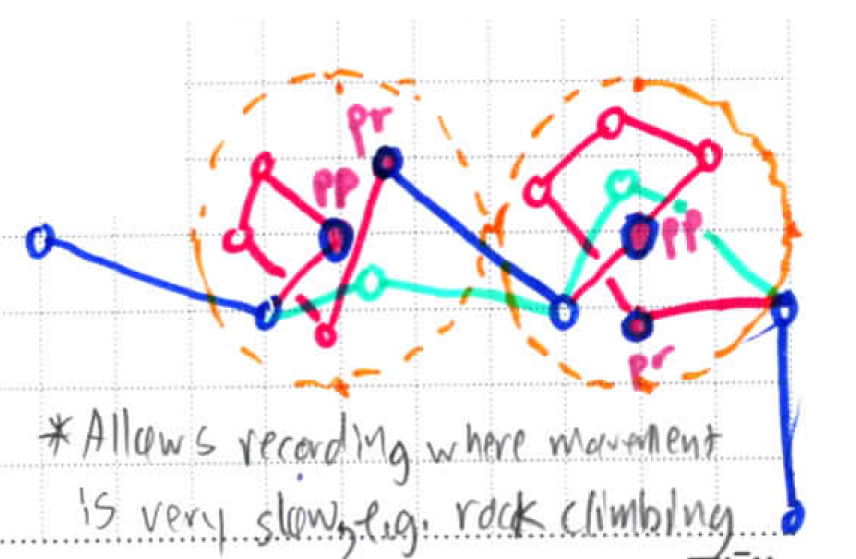 pr
pp
pp
pr
* Allows recording where movement
is very slow, e.g. rock climbing